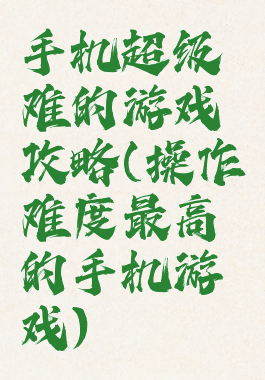 手机超级
难的游戏
攻略(操作
难度最高
的手机游
戏)